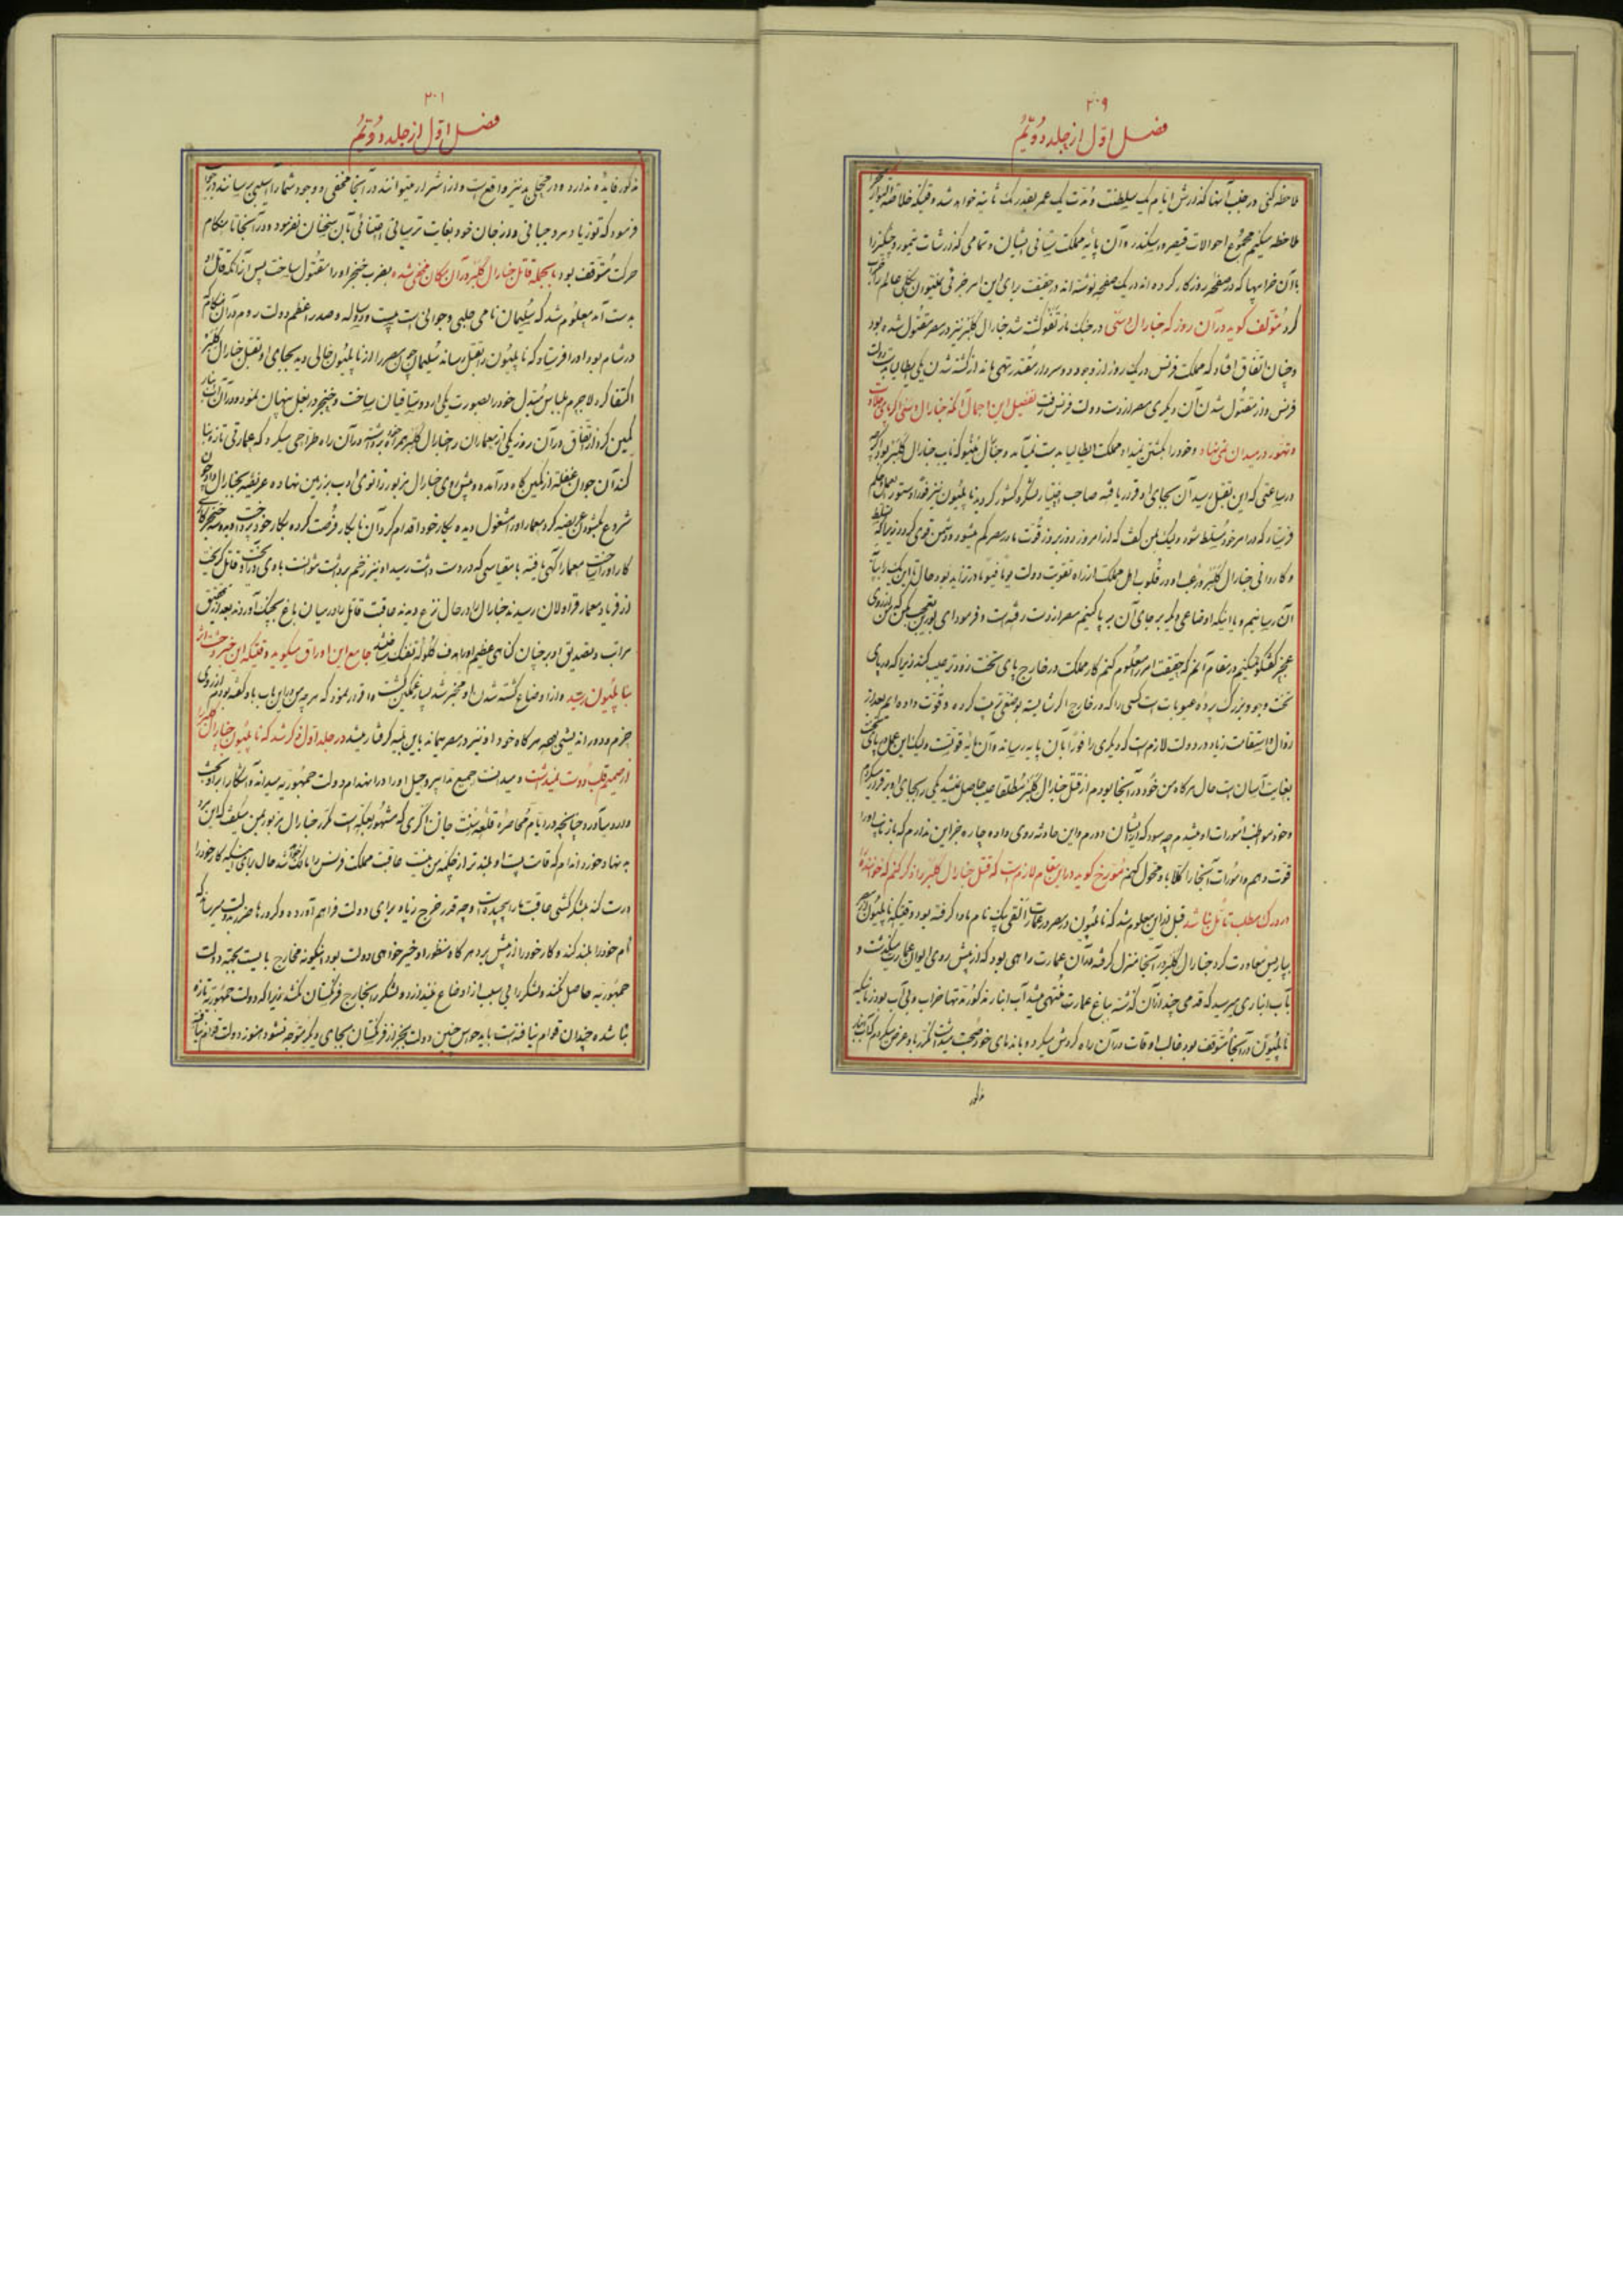 ۲۰۹
فصل اول از جلد دویم
ملاحظه کنی در جنب آنها گذارش ایام یک سلطنت و مدت یک عمر بقدر یک ثانیه خواهد شد وقتیکه خلاصه
ملاحظه میکنیم مجموع احوالات قیصر و اسکندر و آن پایه مملکت ستانی ایشان و تمامی گذارشات تیمور و چنگیز را
با آن خرابیها که در صفحه روزگار کرده اند در یک صفحه نوشته اند در حقیقت برای این امر حرفی
کرد مؤلف گوید در آن روز که جنارال دسی در جنگ مارنغو کشته شد جنارال کلبر نیز در مصر مقتول شده بود
و چنان اتفاق افتاد که مملکت فرنس در یک روز از وجود دو سردار مقتدر تهی ماند از کشته شدن یکی ایطالیا بدست دولت
فرنس و از مقتول شدن آن دیگری مصر از دست دولت فرنس رفت تفصیل این اجمال آنکه جنارال دسی اگر پای جلادت
و تهور در میدان نمی نهاد و خود را بکشتن نمیداد مملکت ایطالیا بدست نمیآمد و جنارال منو که نایب جنارال کلبر بود
در ساعتی که این بقتل رسید آن بجای او قرار یافته صاحب اختیار لشکر و کشور گردید ناپلئون نیز فورا دستور العمل
فرستاد که در امر خود مسلط شود ولیک بمن گفت که از امروز روز بروز قوت ما در مصر کم میشود و دشمن قوی گردد زیرا که
و کاردانی جنارال کلبر و رعب او در قلوب اهل مملکت از راه تقویت دولت یوما فیوما در تزاید بود حال
آن رسانیم و یا اینکه اوضاعی دیگر بر جای آن بر پا کنیم مصر از دست رفته است و فرمود ای بورین
عجز گفتگو نمیکنیم در مقام آنم که حقیقت امر معلوم کنم کار مملکت در خارج پای تخت زودتر عیب کند زیرا که در پای
تخت وجود بزرگ پرده عیوبات است کسی را که در خارج اگر شایسته بود منفعتی ترتیب کرده و قوت داده ایم بعد از
زوال و استقامت زیاد در دولت لازم است که دیگری را فورا بآن پایه رساند و آن مایه قوتیست ولیک این عمل در پای تخت
بغایت آسان است حال هر گاه من خود در آنجا بودم از قتل جنارال کلبر مطلقا عیب حاصل نمیشد یکی را بجای او برقرار میکردم
و خود مواظب امورات او میشدم چه سود که از ایشان دورم و این حادثه روی داده چاره جز این ندارم که باز نایب او را
قوت دهم و امورات آنجا را کلا باو محول کنم مورخ گوید در این مقام لازم است که قتل جنارال کلبر را ذکر کنم که خواننده را
در درک مطلب تأمل نباشد قبل از این معلوم شد که ناپلئون در مصر در عمارت الفی بیک نام ماوا گرفته بود وقتیکه ناپلئون از مصر
بپاریس معاودت کرد جنارال کلبر در آنجا منزل گرفته در آن عمارت راهی بود که از پیش روی ایوان عمارت میگذشت و
بآب انباری میرسید که قدمی چند از آن گذشته بباغ عمارت منتهی میشد آب انبار مذکور مدتها خراب و بی آب بود زمانیکه
ناپلئون در آنجا متوقف بود غالب اوقات در آن راه گردش میکرد و با ندمای خود صحبت میداشت مکرر باو عرض میکردم که آب انبار
مذکور
۲۰۱
فصل اول از جلد دویم
مذکور فایده ندارد و در محلی بد نیز واقع است و از اشرار میتوانند در آنجا مخفی و وجود شما را آسیبی برسانند در جواب
فرمود که تو زیاد مرد جبانی و در جان خود بغایت ترسانی اعتنائی بآن سخنان نفرمود و در آنجا تا هنگام
حرکت متوقف بود بالجمله قاتل جنارال کلبر در آن مکان مخفی شده بضرب خنجر او را مقتول ساخت پس از آنکه قاتل او
بدست آمد معلوم شد که سلیمان نامی حلبی و جوانی است بیست و دو ساله و صدر اعظم دولت روم در آن هنگام که
در شام بود او را فرستاد که ناپلئون را بقتل رساند سلیمان چون مصر را از ناپلئون خالی دید بجای او بقتل جنارال کلبر
اکتفا کرد لاجرم بلباس مبدل خود را بصورت یکی از روستائیان ساخت و خنجر در بغل پنهان نمود و در آن آب انبار
کمین کرد از اتفاق در آن روز یکی از معماران را جنارال کلبر همراه خود برداشته در آن راه طراحی میکرد که عمارتی تازه بنا
کند آن جوان غفلة از کمین گاه درآمده و پیش روی جنارال مزبور زانوی ادب بزمین نهاده عریضه بجنارال داد چون
شروع بگشودن عریضه کرد معمار او را مشغول دیده بکار خود اقدام کرد آن نابکار فرصت کرده بکار خود پرداخت
کار او را ساخت معمار آگهی یافته با مقیاسی که در دست داشت رسید او نیز زخم برداشت نتوانست با وی در آویخت قاتل گریخت
از فریاد معمار قراولان رسیدند جنارال را در حال نزع دیدند عاقبت قاتل را در میان باغ بچنگ آوردند بعد از تحقیق
مراتب و تصدیق او بر چنان گناهی عظیم او را هدف گلوله تفنگ ساختند جامع این اوراق میگوید وقتیکه این خبر وحشت اثر
بناپلئون رسید و از اوضاع کشته شدن او مخبر شد بسیار غمگین گشت و اقرار نمود که هر چه من در این باب باو گفته بودم از روی
حزم و دوراندیشی بوده هر گاه خود او نیز در مصر میماند باین بلیه گرفتار میشد در جلد اول ذکر شد که ناپلئون جنارال کلبر را
از صمیم قلب دوست نمیداشت و میدانست جمیع تدابیر و حیل او را در انهدام دولت جمهوریه میدانند و آشکارا بر او بحث
وارد میآورد چنانچه در ایام محاصره قلعه سنت جان داکری که مشهور بعکه است مکرر جنارال مزبور بمن میگفت که این مرد
بد نهاد خورد اندام که قامت پست او بلندتر از چکمه من نیست عاقبت مملکت فرنس را مالک خواهد شد حال رأی میدهد که کار خود را
درست کند بلشکر کشی عاقبت ما را پیچیده است و چه قدر خرج زیاد برای دولت فراهم آورده و کرورها ضرر بدولت میرساند که
نام خود را بلند کند و کار خود را از پیش برد هر گاه منظور او خیرخواهی دولت بود اینگونه مخارج بایست بجهة دولت
جمهوریه حاصل نکند و لشکر را بی سبب از اوضاع نیندازد و لشکر را بخارج فرنگستان نکشد زیرا که دولت جمهوریه تازه
بنا شده چندان قوام نیافته است باید حواس چنین دولت بجز از فرنگستان بجای دیگر متوجه نشود هنوز دولت قوام نیافته